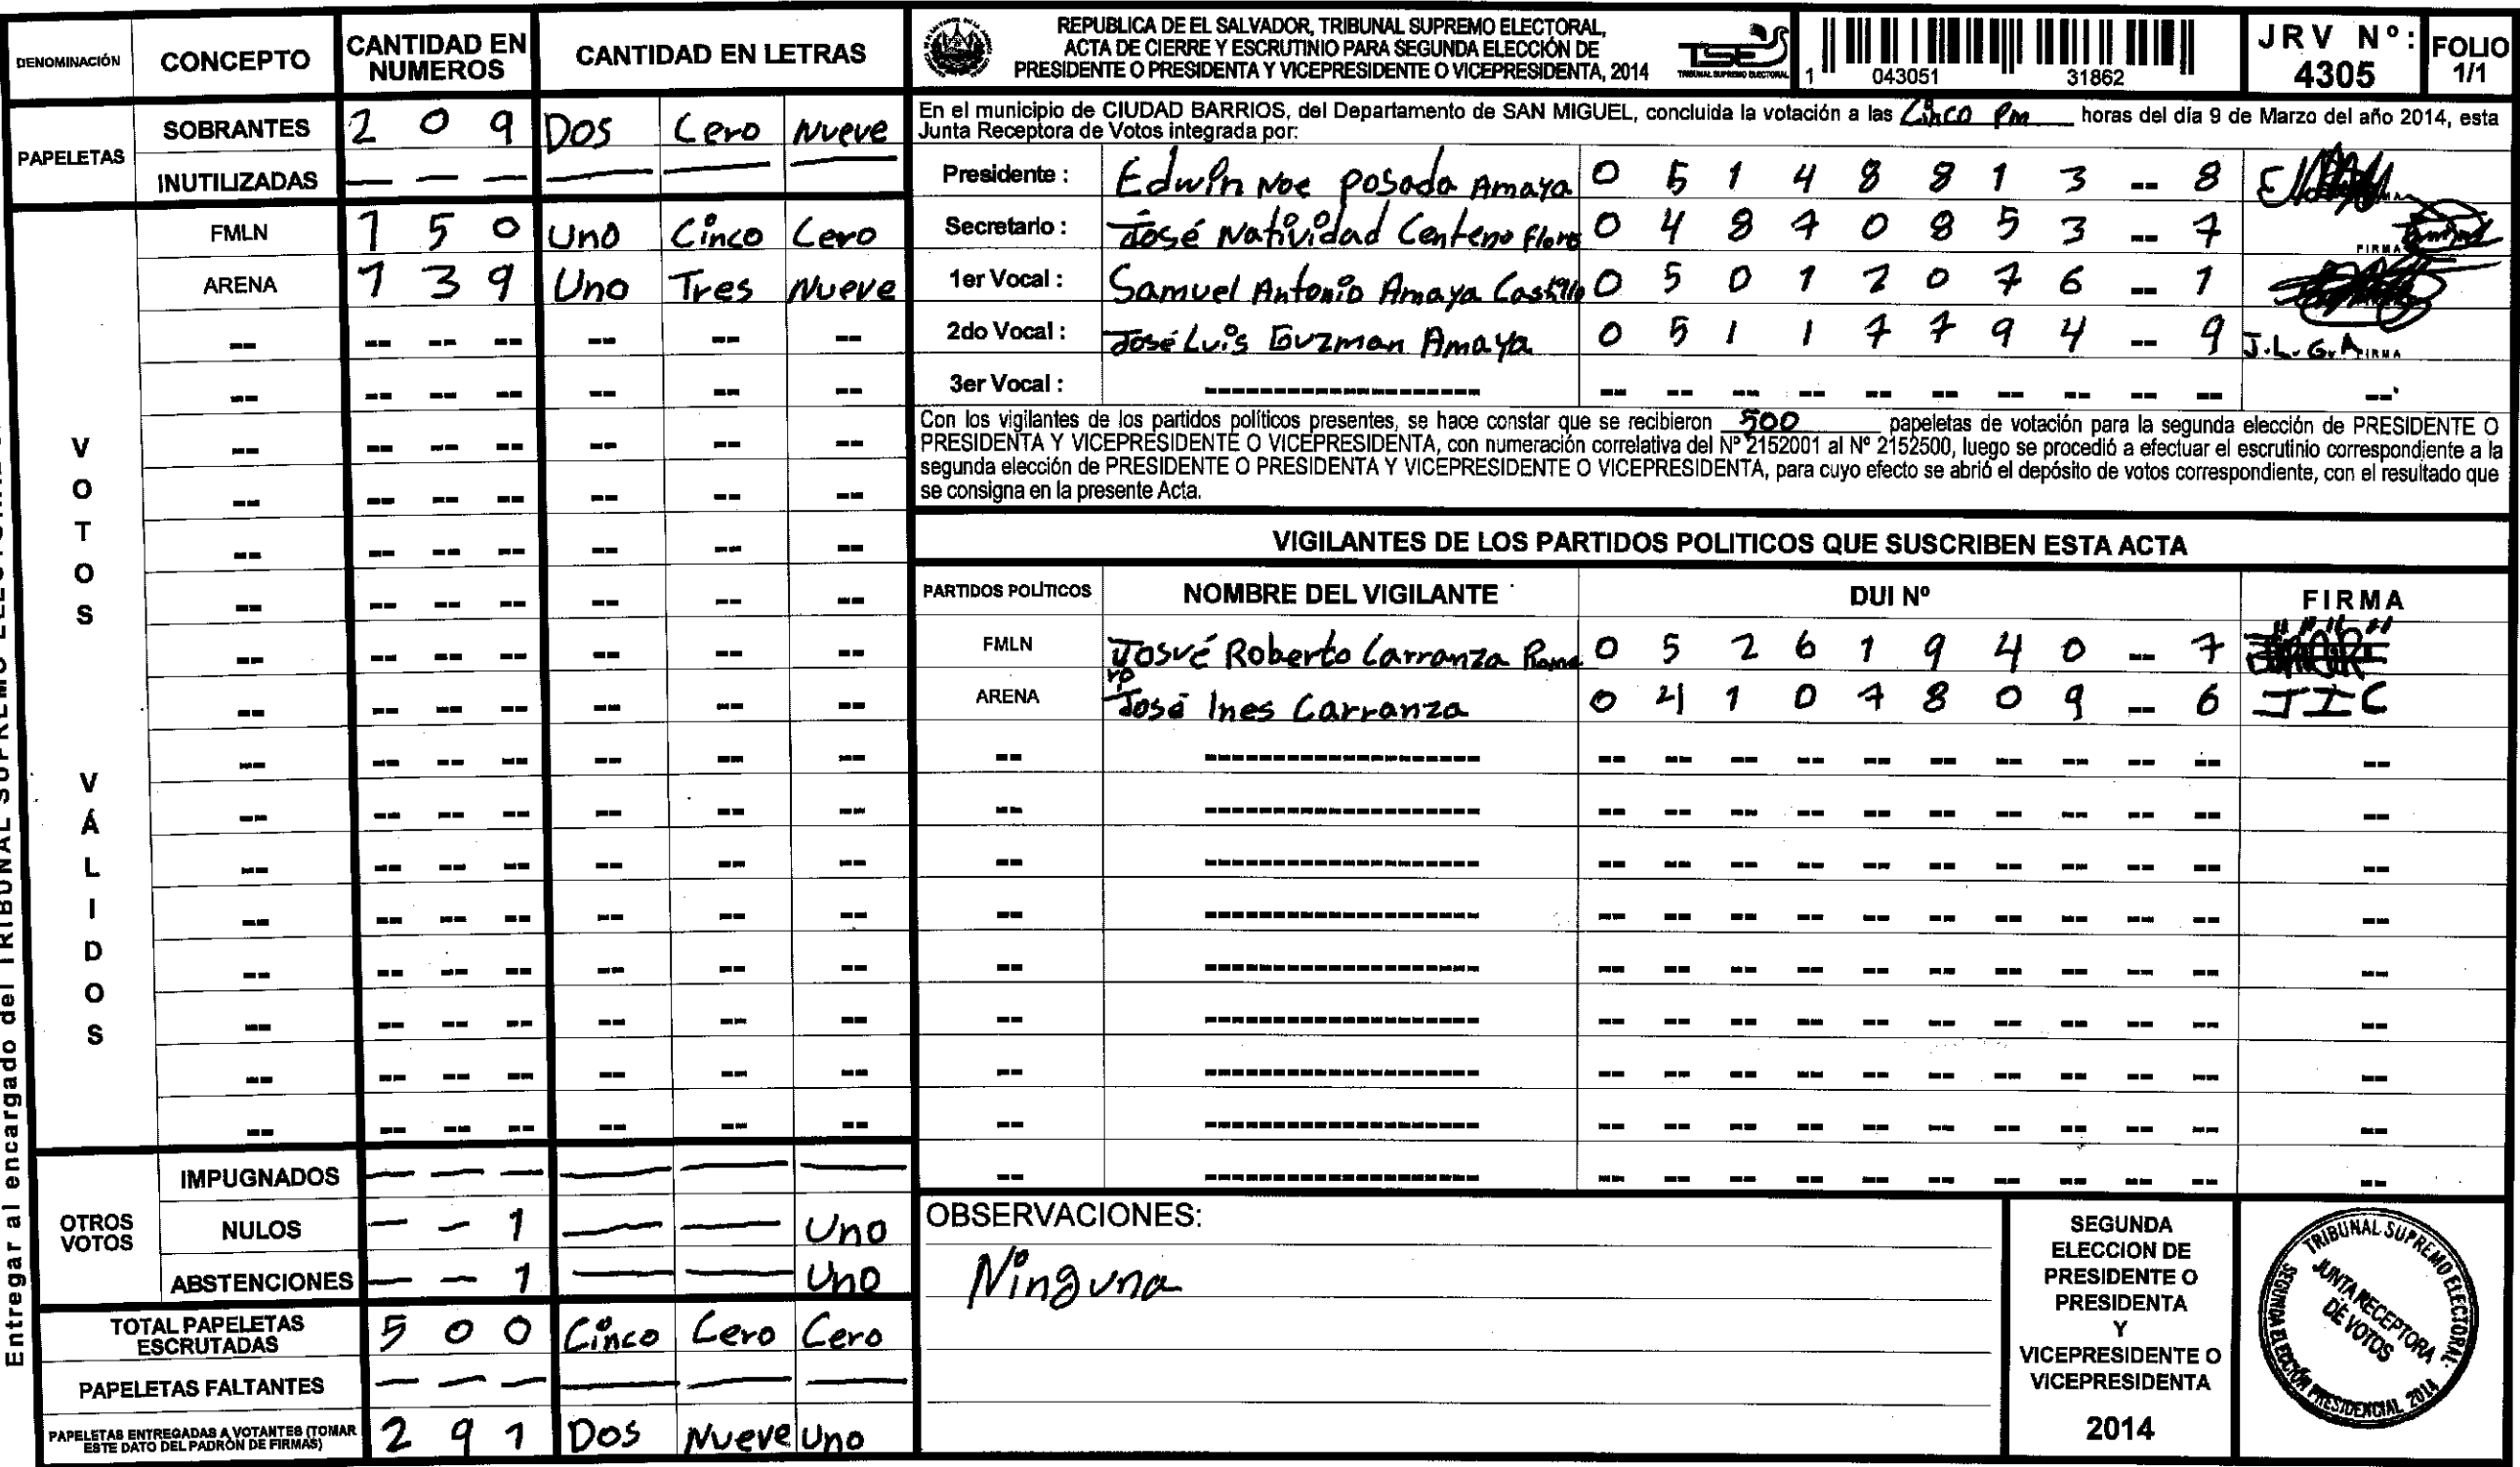 DENOMINACIÓN CONCEPTO CANTIDAD EN NUMEROS CANTIDAD EN LETRAS
PAPELETAS
SOBRANTES 2 0 9 Dos Cero Nueve
INUTILIZADAS — — — — — —
VOTOS VÁLIDOS
FMLN 1 5 0 Uno Cinco Cero
ARENA 1 3 9 Uno Tres Nueve
OTROS VOTOS
IMPUGNADOS — — — — — —
NULOS — — 1 — — Uno
ABSTENCIONES — — 1 — — Uno
TOTAL PAPELETAS ESCRUTADAS 5 0 0 Cinco Cero Cero
PAPELETAS FALTANTES — — — — — —
PAPELETAS ENTREGADAS A VOTANTES (TOMAR ESTE DATO DEL PADRÓN DE FIRMAS) 2 9 1 Dos Nueve Uno
Entregar al encargado del TRIBUNAL SUPREMO
REPUBLICA DE EL SALVADOR, TRIBUNAL SUPREMO ELECTORAL,
ACTA DE CIERRE Y ESCRUTINIO PARA SEGUNDA ELECCIÓN DE
PRESIDENTE O PRESIDENTA Y VICEPRESIDENTE O VICEPRESIDENTA, 2014
TSE
TRIBUNAL SUPREMO ELECTORAL
1 043051 31862
JRV Nº: 4305
FOLIO 1/1
En el municipio de CIUDAD BARRIOS, del Departamento de SAN MIGUEL, concluida la votación a las Cinco Pm horas del día 9 de Marzo del año 2014, esta
Junta Receptora de Votos integrada por:
Presidente : Edwin Noe Posada Amaya 0 5 1 4 8 8 1 3 -- 8
Secretario : José Natividad Centeno Flores 0 4 8 7 0 8 5 3 -- 7 FIRMA
1er Vocal : Samuel Antonio Amaya Castillo 0 5 0 1 2 0 7 6 -- 1
2do Vocal : José Luis Guzman Amaya 0 5 1 1 7 7 9 4 -- 9 J.L.G.A FIRMA
3er Vocal : -- -- -- -- -- -- -- -- -- --
Con los vigilantes de los partidos políticos presentes, se hace constar que se recibieron 500 papeletas de votación para la segunda elección de PRESIDENTE O
PRESIDENTA Y VICEPRESIDENTE O VICEPRESIDENTA, con numeración correlativa del Nº 2152001 al Nº 2152500, luego se procedió a efectuar el escrutinio correspondiente a la
segunda elección de PRESIDENTE O PRESIDENTA Y VICEPRESIDENTE O VICEPRESIDENTA, para cuyo efecto se abrió el depósito de votos correspondiente, con el resultado que
se consigna en la presente Acta.
VIGILANTES DE LOS PARTIDOS POLITICOS QUE SUSCRIBEN ESTA ACTA
PARTIDOS POLÍTICOS NOMBRE DEL VIGILANTE DUI Nº FIRMA
FMLN Josué Roberto Carranza Romero 0 5 2 6 1 9 4 0 -- 7
ARENA José Ines Carranza 0 4 1 0 7 8 0 9 -- 6 JIC
OBSERVACIONES:
Ninguna
SEGUNDA
ELECCION DE
PRESIDENTE O
PRESIDENTA
Y
VICEPRESIDENTE O
VICEPRESIDENTA
2014
TRIBUNAL SUPREMO ELECTORAL.
JUNTA RECEPTORA
DE VOTOS
SEGUNDA ELECCIÓN PRESIDENCIAL 2014